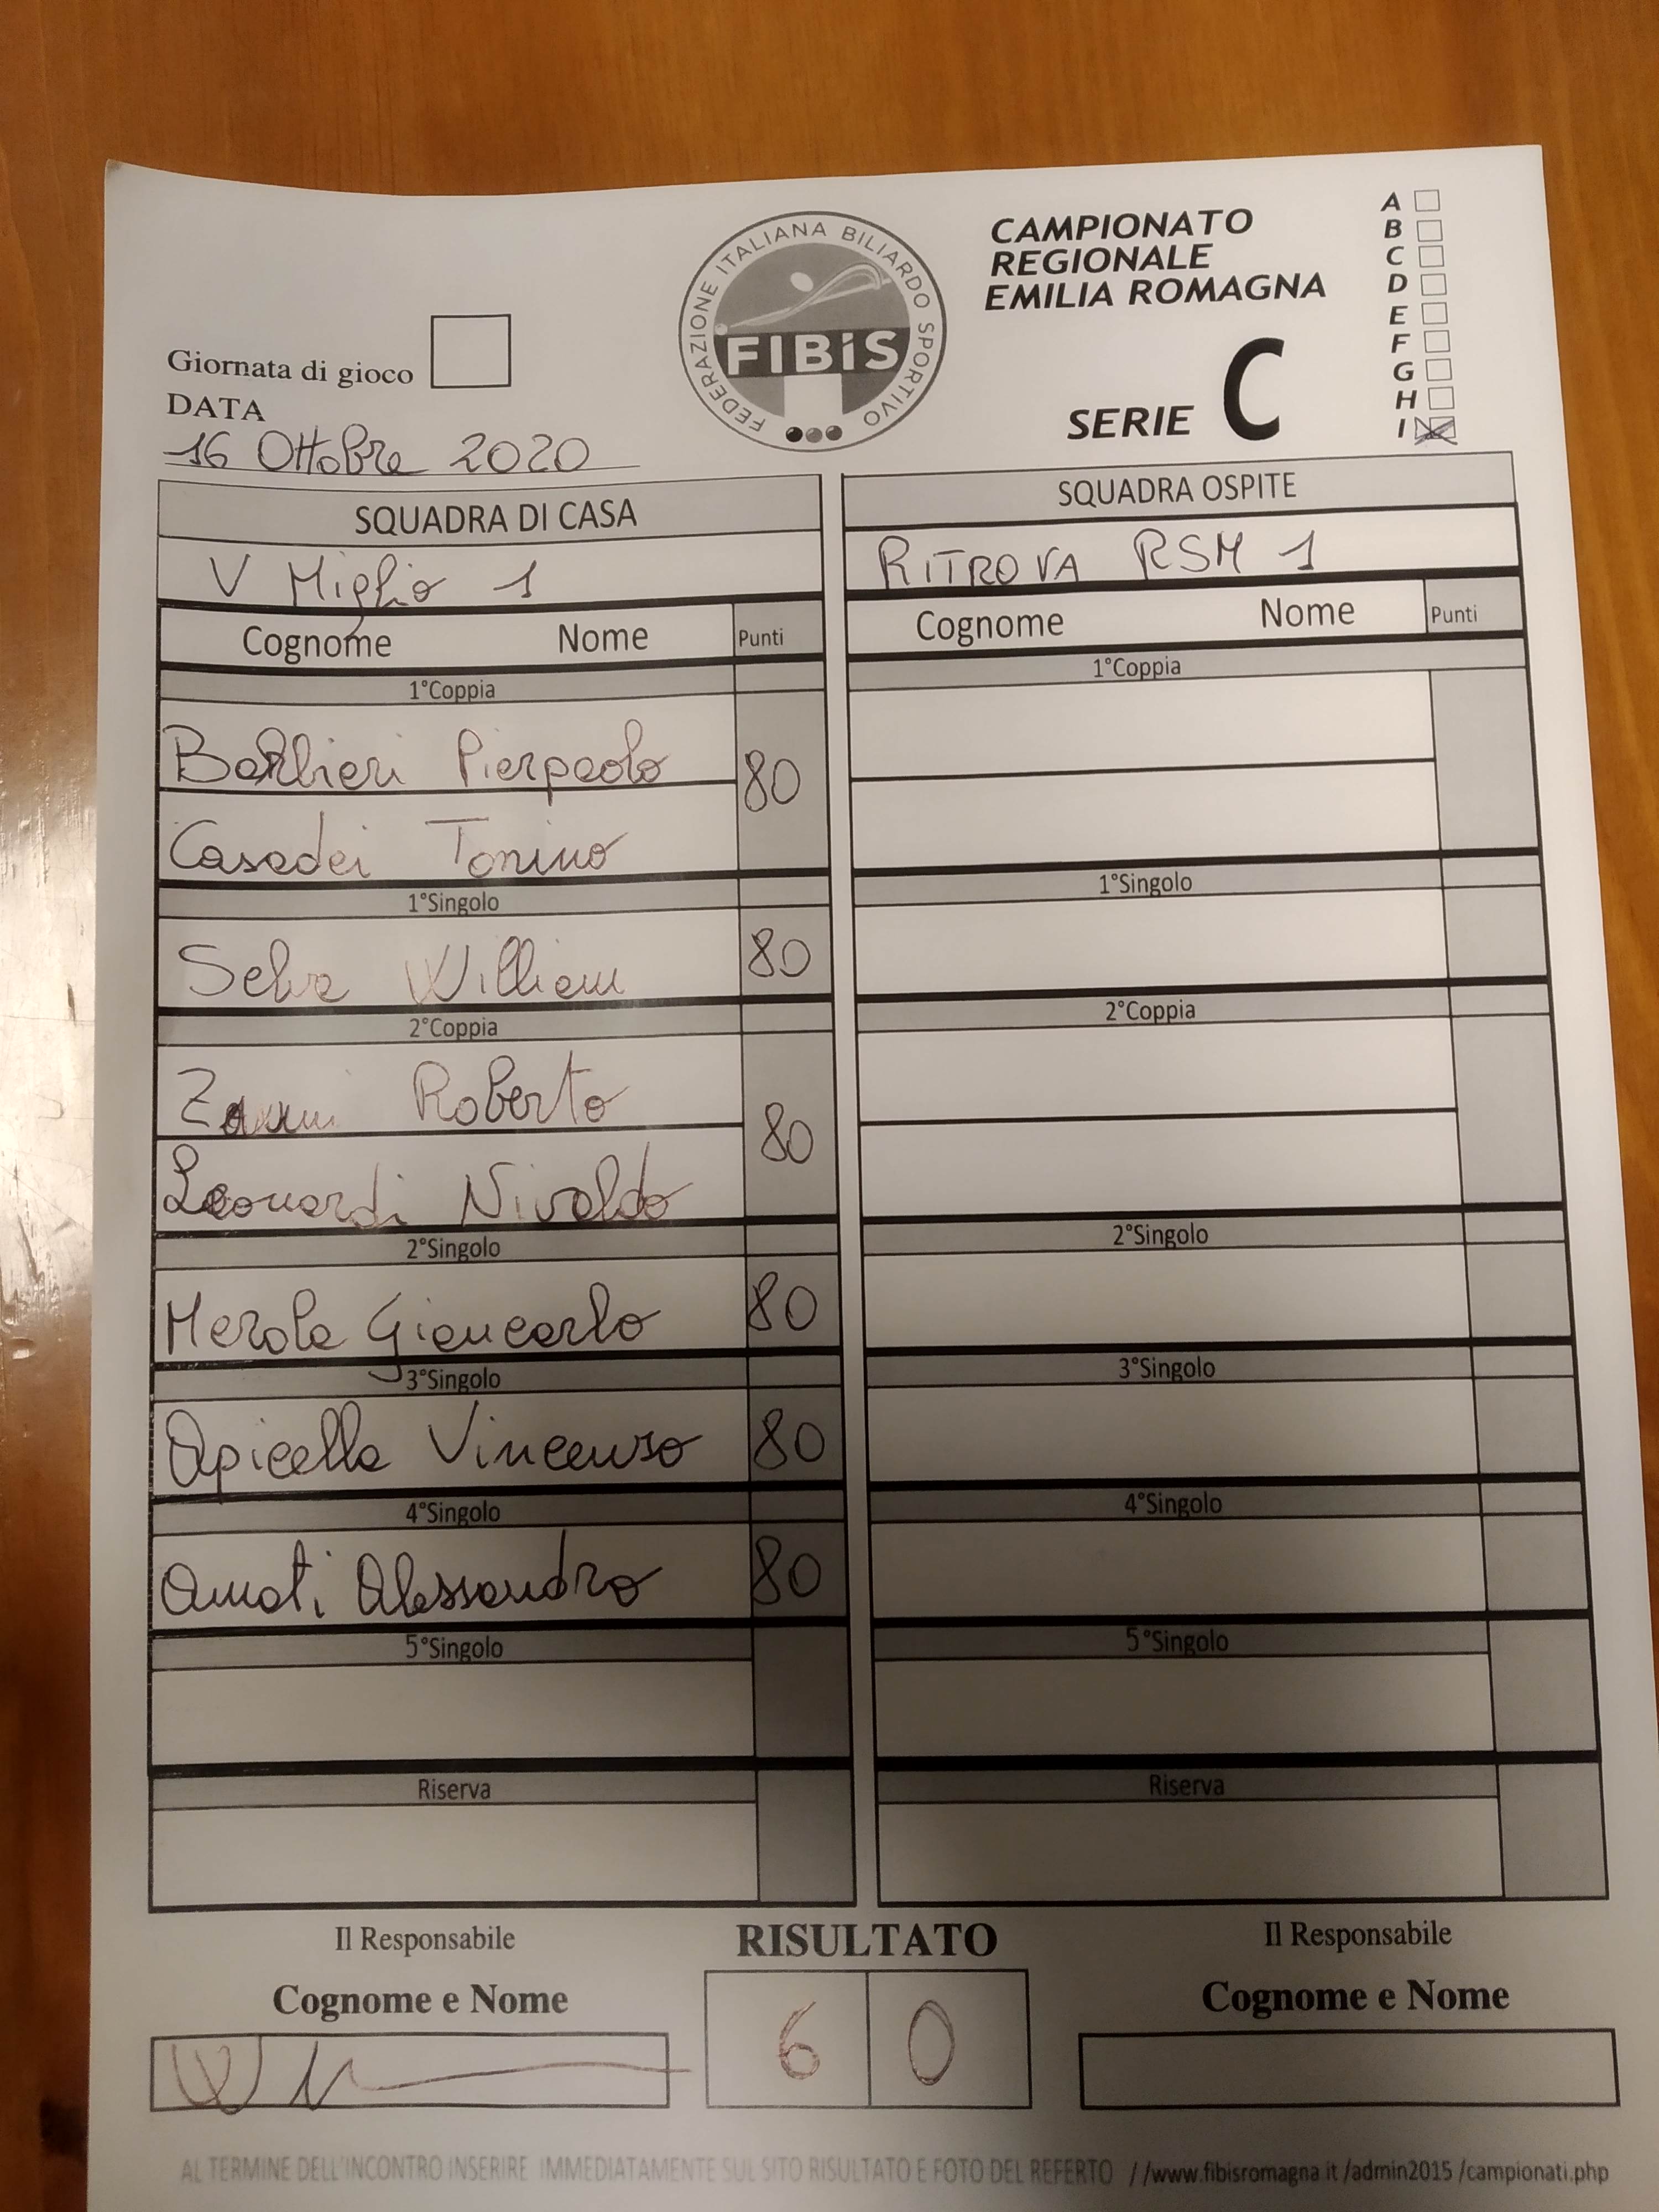 FEDERAZIONE ITALIANA BILIARDO SPORTIVO
FIBiS
CAMPIONATO
REGIONALE
EMILIA ROMAGNA
SERIE C
A
B
C
D
E
F
G
H
I
Giornata di gioco
DATA
16 Ottobre 2020
SQUADRA DI CASA
V Miglio 1
Cognome Nome Punti
1°Coppia
Barbieri Pierpaolo
80
Casadei Tonino
1°Singolo
Selva William 80
2°Coppia
Zanni Roberto
80
Leonardi Nivaldo
2°Singolo
Merola Giancarlo 80
3°Singolo
Apicella Vincenzo 80
4°Singolo
Amati Alessandro 80
5°Singolo
Riserva
SQUADRA OSPITE
RITROVA RSM 1
Cognome Nome Punti
1°Coppia
1°Singolo
2°Coppia
2°Singolo
3°Singolo
4°Singolo
5°Singolo
Riserva
Il Responsabile
Cognome e Nome
RISULTATO
6 0
Il Responsabile
Cognome e Nome
AL TERMINE DELL'INCONTRO INSERIRE IMMEDIATAMENTE SUL SITO RISULTATO E FOTO DEL REFERTO //www.fibisromagna.it /admin2015 /campionati.php